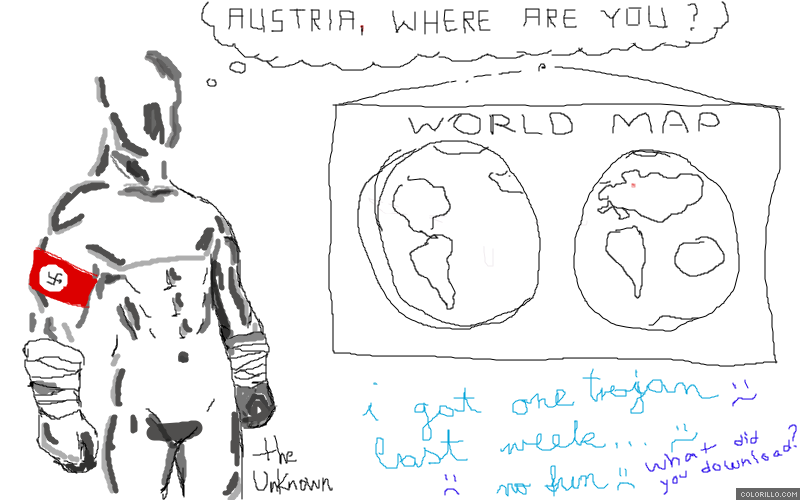 AUSTRIA, WHERE ARE YOU ?
WORLD MAP
i got one trojan :(
last week... :(
no fun :(
:(
what did
you download?
the
UnKnown
COLORILLO.COM